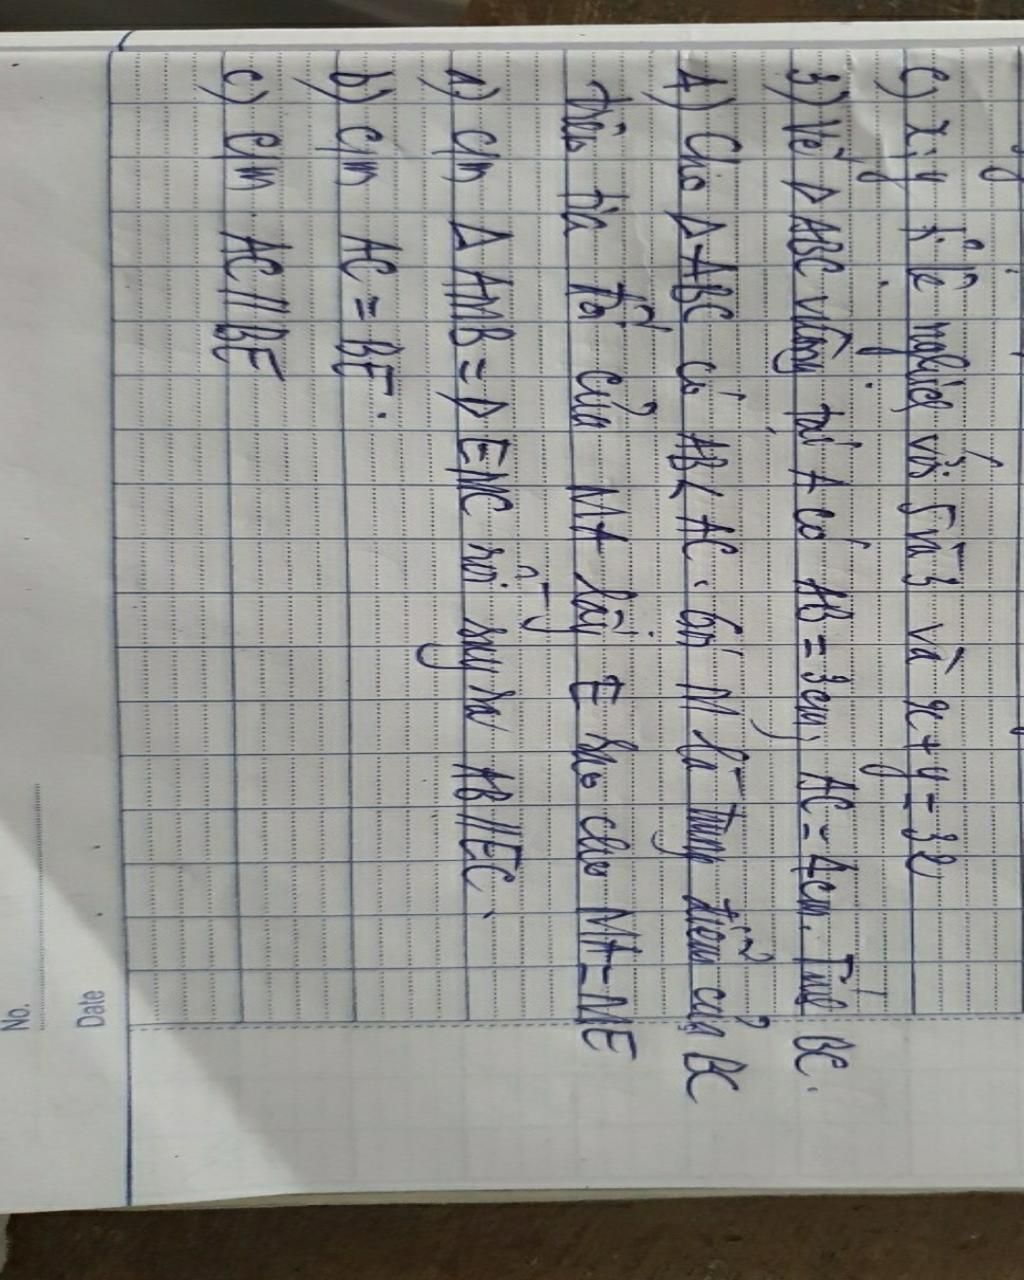 c) x; y tỉ lệ nghịch với 5 và 3 và x + y = 32
3) Vẽ Δ ABC vuông tại A có AB = 3cm, AC = 4cm. Tính BC.
4) Cho Δ ABC có AB < AC. Gọi M là trung điểm của BC
Trên tia đối của MA lấy E sao cho MA = ME
a) C/m Δ AMB = Δ EMC rồi suy ra AB // EC.
b) C/m AC = BE.
c) C/m AC // BE
No.
Date